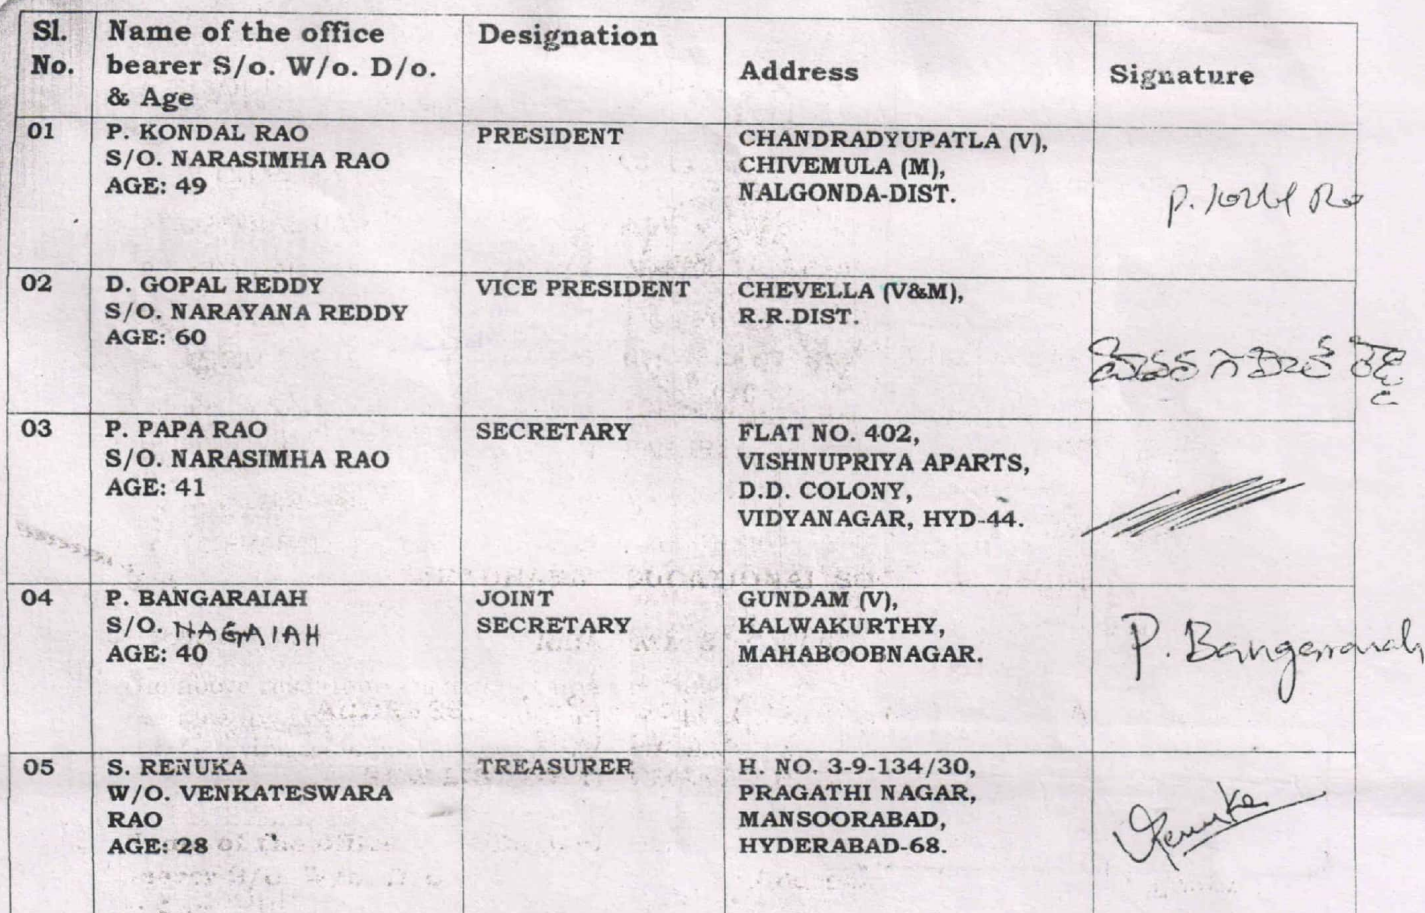 Sl. No.
Name of the office bearer S/o. W/o. D/o. & Age
Designation
Address
Signature
01
P. KONDAL RAO
S/O. NARASIMHA RAO
AGE: 49
PRESIDENT
CHANDRADYUPATLA (V),
CHIVEMULA (M),
NALGONDA-DIST.
02
D. GOPAL REDDY
S/O. NARAYANA REDDY
AGE: 60
VICE PRESIDENT
CHEVELLA (V&M),
R.R.DIST.
03
P. PAPA RAO
S/O. NARASIMHA RAO
AGE: 41
SECRETARY
FLAT NO. 402,
VISHNUPRIYA APARTS,
D.D. COLONY,
VIDYANAGAR, HYD-44.
04
P. BANGARAIAH
S/O. NAGAIAH
AGE: 40
JOINT
SECRETARY
GUNDAM (V),
KALWAKURTHY,
MAHABOOBNAGAR.
P. Bangaraiah
05
S. RENUKA
W/O. VENKATESWARA
RAO
AGE: 28
TREASURER
H. NO. 3-9-134/30,
PRAGATHI NAGAR,
MANSOORABAD,
HYDERABAD-68.
Renuka